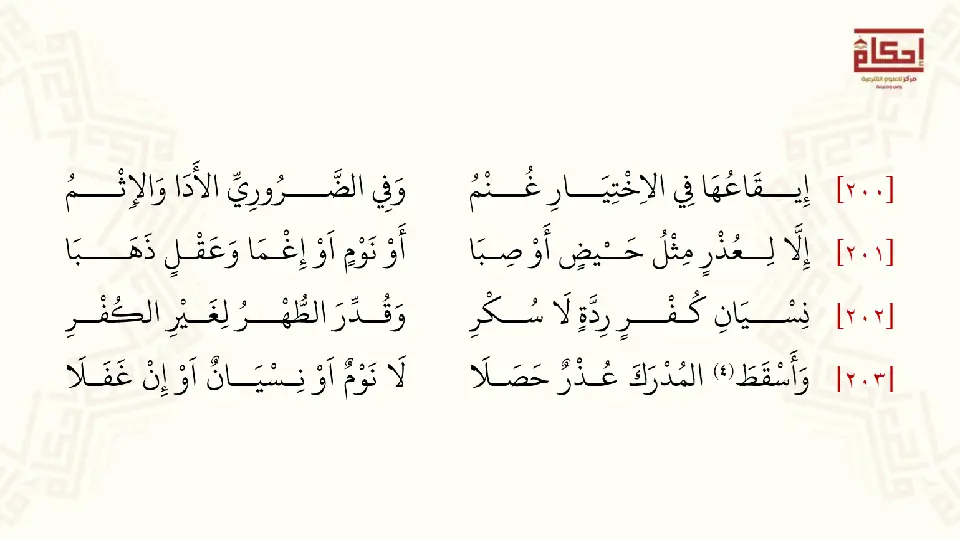 إحكام
مركز للعلوم الشرعية
[٢٠٠] إِيـقَاعُهَا فِي الاِخْتِيَارِ غُنْمُ وَفِي الضَّرُورِيِّ الأَدَا وَالإِثْمُ
[٢٠١] إِلَّا لِعُذْرٍ مِثْلُ حَيْضٍ أَوْ صِبَا أَوْ نَوْمٍ اَوْ إِغْمَا وَعَقْلٍ ذَهَبَا
[٢٠٢] نِسْيَانِ كُفْرٍ رِدَّةٍ لَا سُكْرِ وَقُدِّرَ الطُّهْرُ لِغَيْرِ الكُفْرِ
[٢٠٣] وَأَسْقَطَ(٤) المُدْرَكَ عُذْرٌ حَصَلَا لَا نَوْمٌ اَوْ نِسْيَانٌ اَوْ إِنْ غَفَلَا